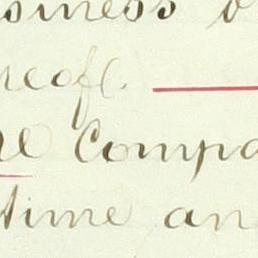 siness
reof.
Compa
time an